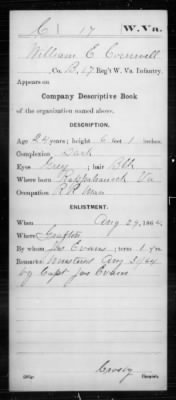 C 17 W. Va.
William E Cornwell
, Co. B, 17 Reg't W. Va. Infantry.
Appears on
Company Descriptive Book
of the organization named above.
DESCRIPTION.
Age 24 years; height 6 feet 1 inches.
Complexion Dark
Eyes Grey ; hair Blk
Where born Rappahannock Va
Occupation RR Man
ENLISTMENT.
When Aug 29, 1864.
Where Grafton
By whom Jas Evans ; term 1 y'rs.
Remarks: Mustered Aug 31/64
by Capt Jas Evans
Crosby
Copyist.